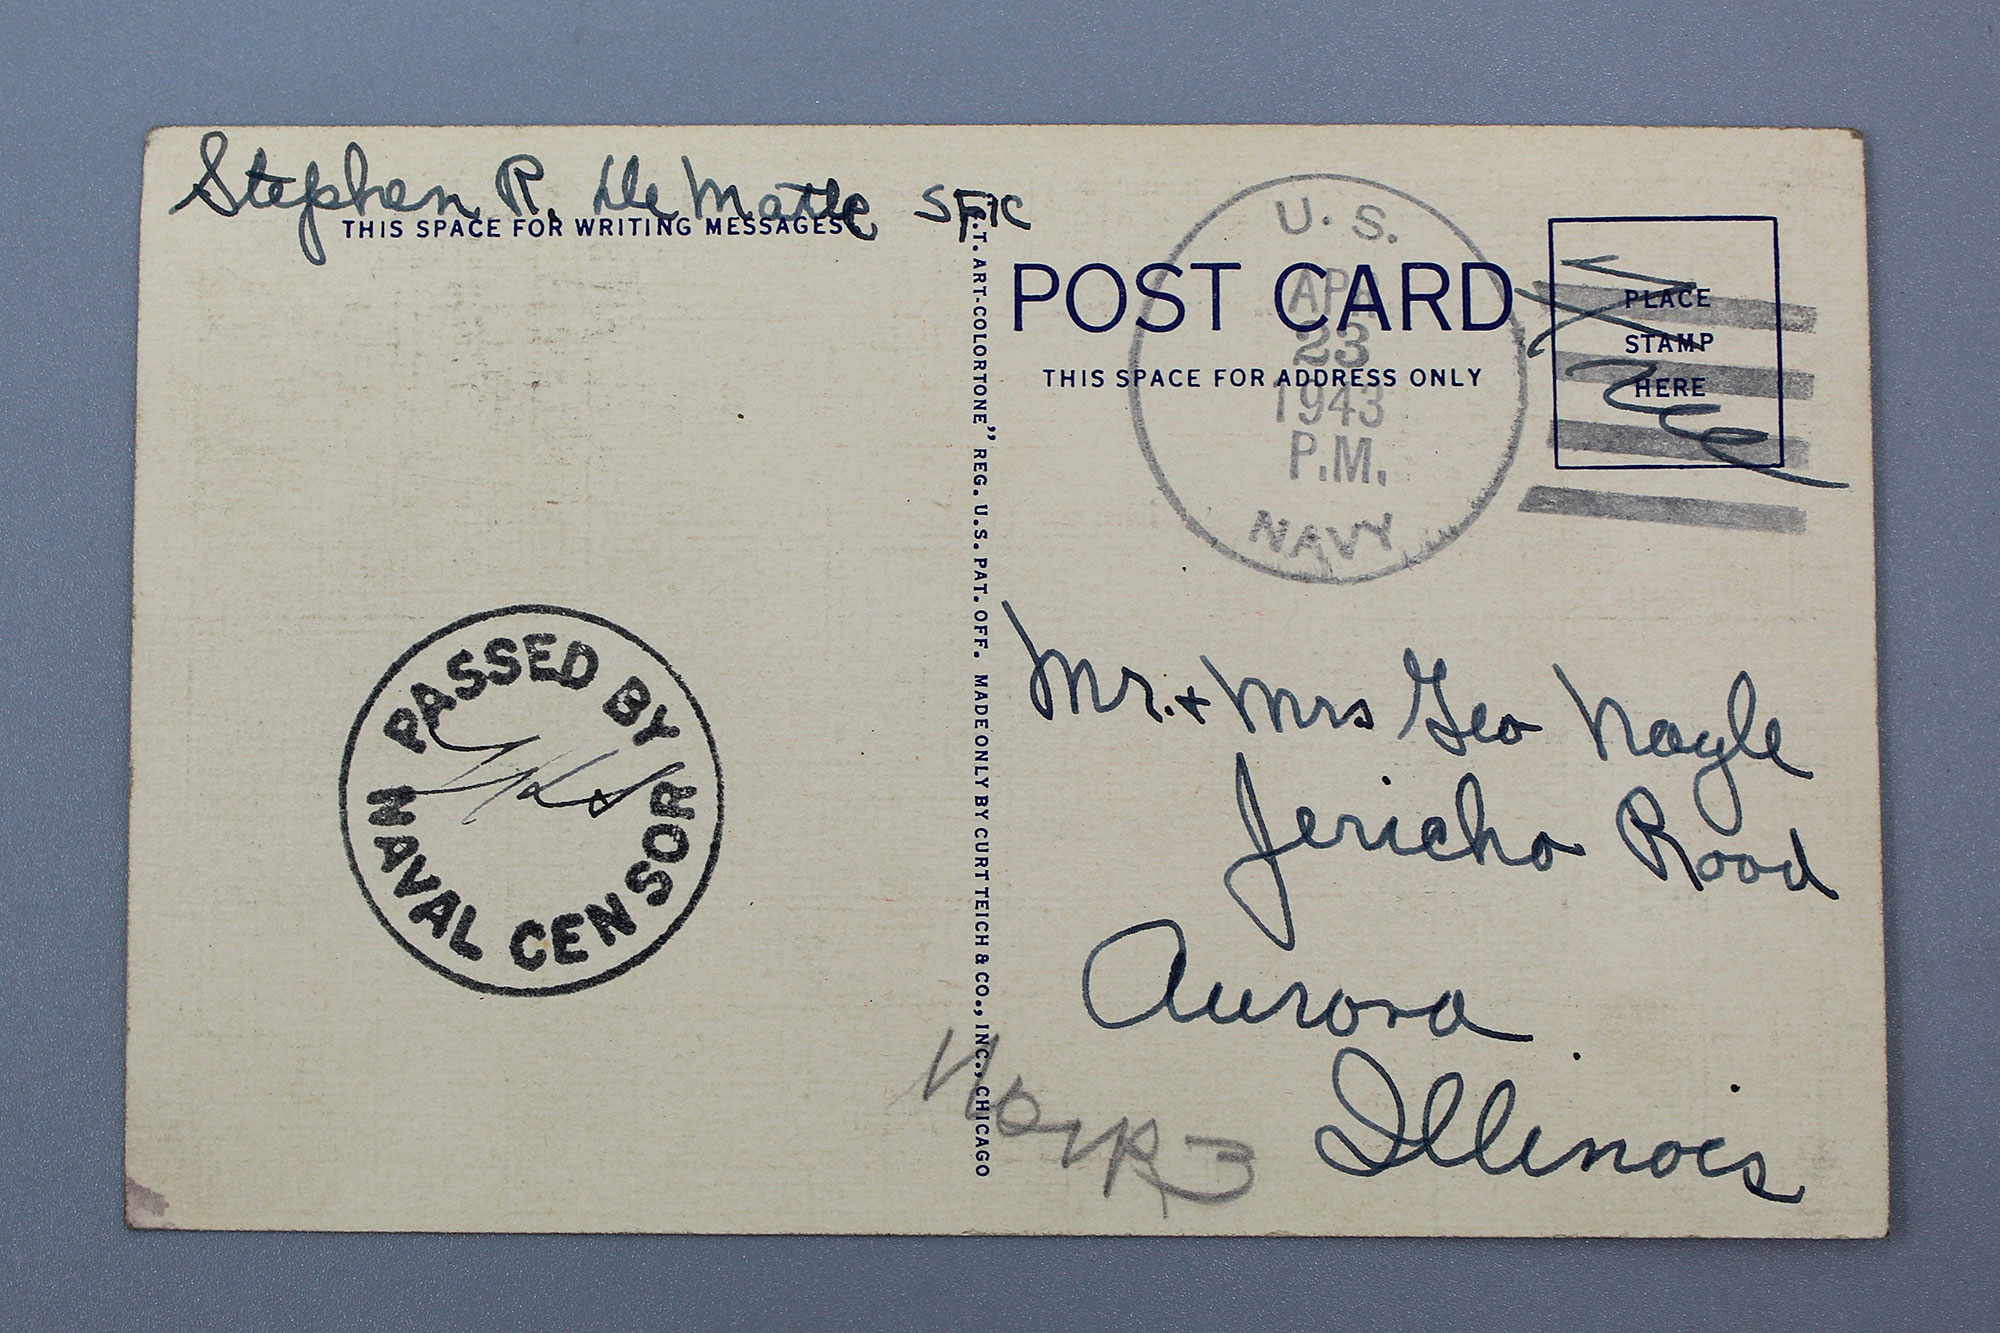 Stephen R. De Matte SF1C
THIS SPACE FOR WRITING MESSAGES
C.T. ART-COLORTONE" REG. U.S. PAT. OFF. MADE ONLY BY CURT TEICH & CO., INC., CHICAGO
POST CARD
THIS SPACE FOR ADDRESS ONLY
U.S.
APR
23
1943
P.M.
NAVY
PLACE
STAMP
HERE
Free
PASSED BY
NAVAL CENSOR
Mr. + Mrs Geo Nayle
Jericho Road
Aurora
Illinois
R3